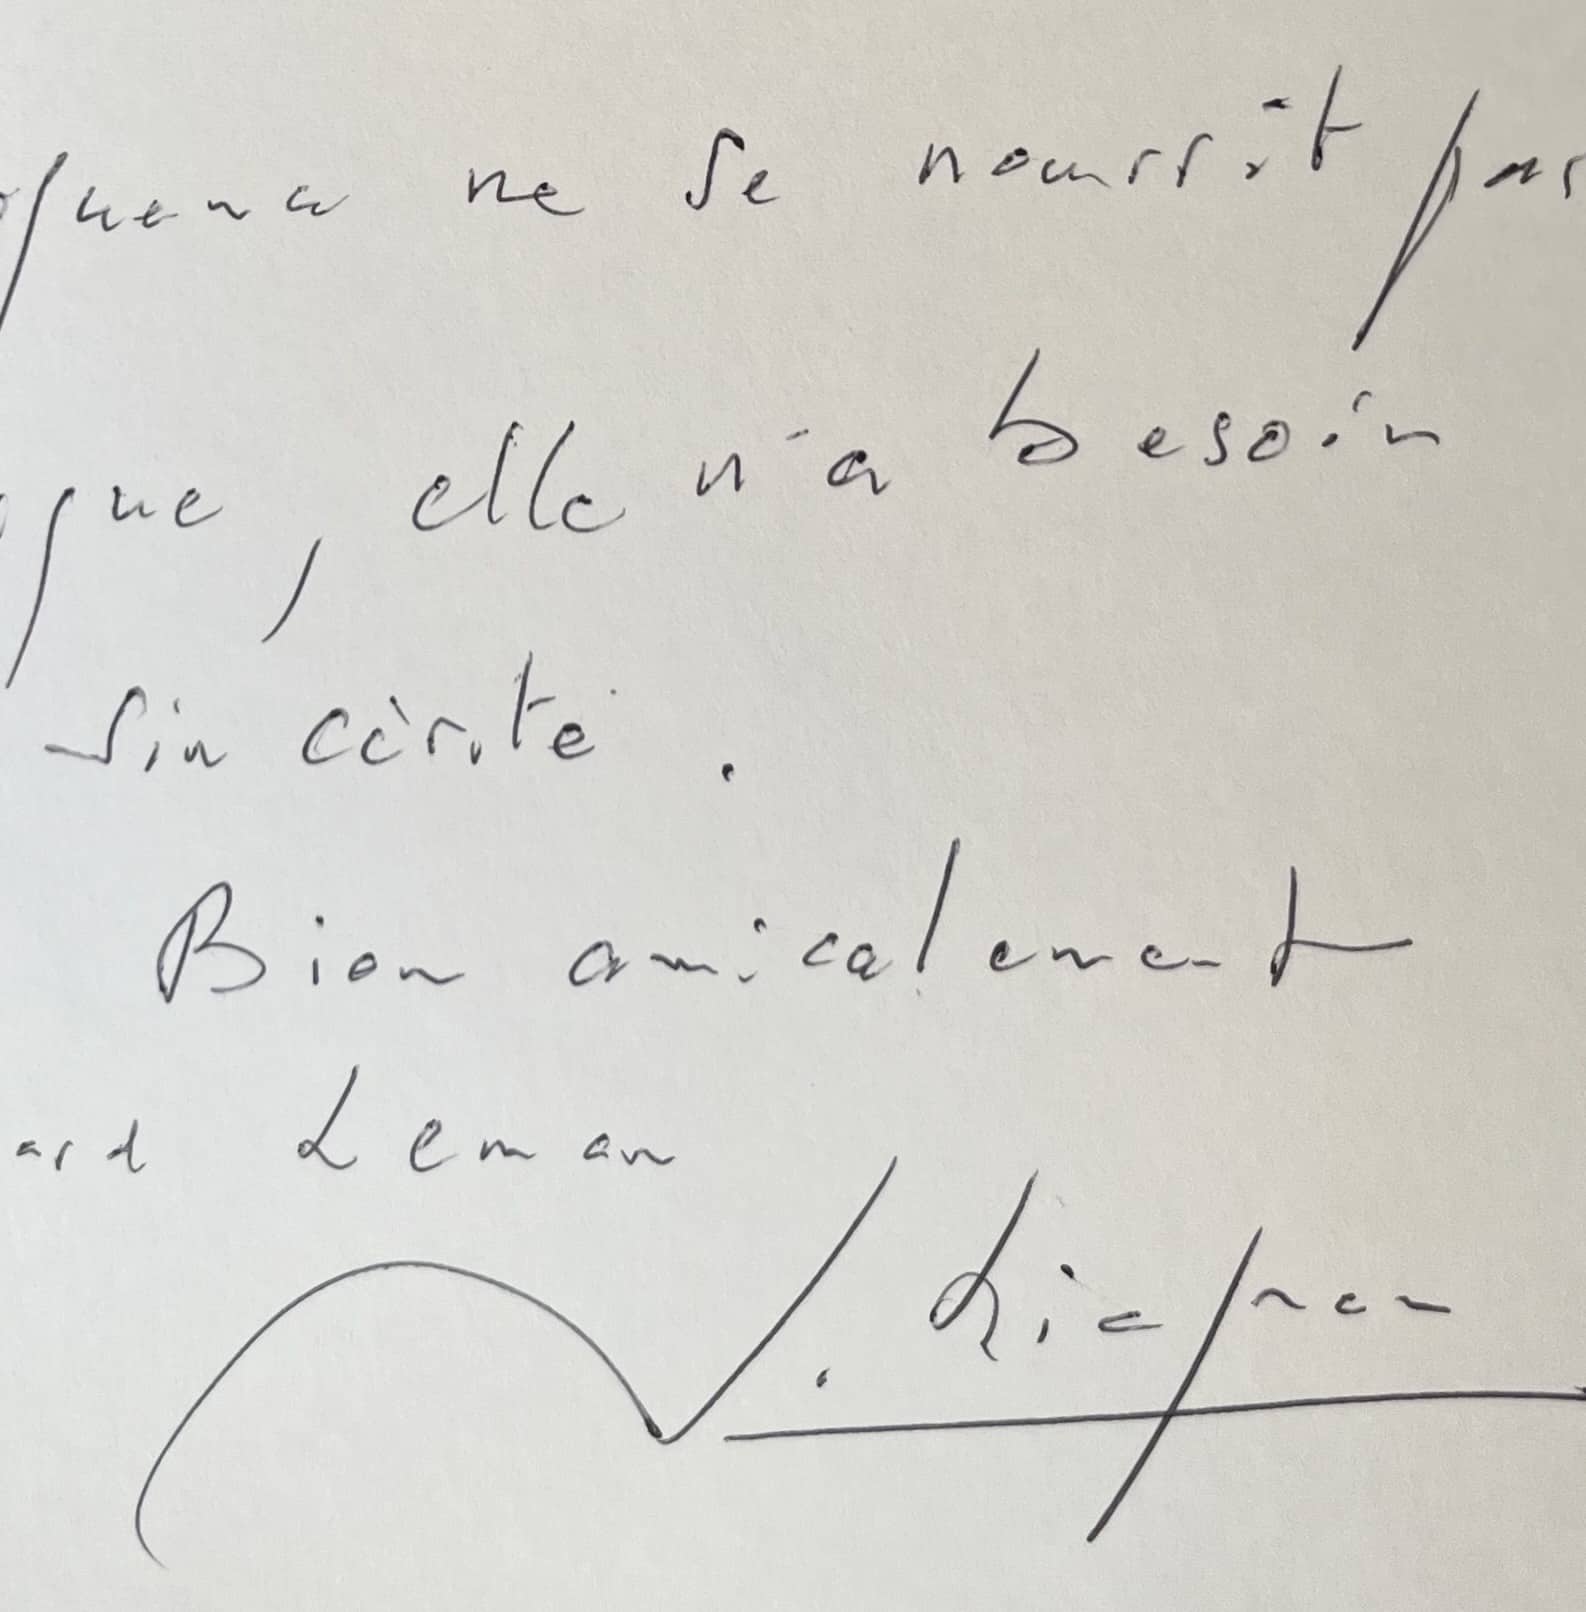 quence ne se nourrit pas
gue, elle n'a besoin
Sincérité.
Bien amicalement
ard Leman